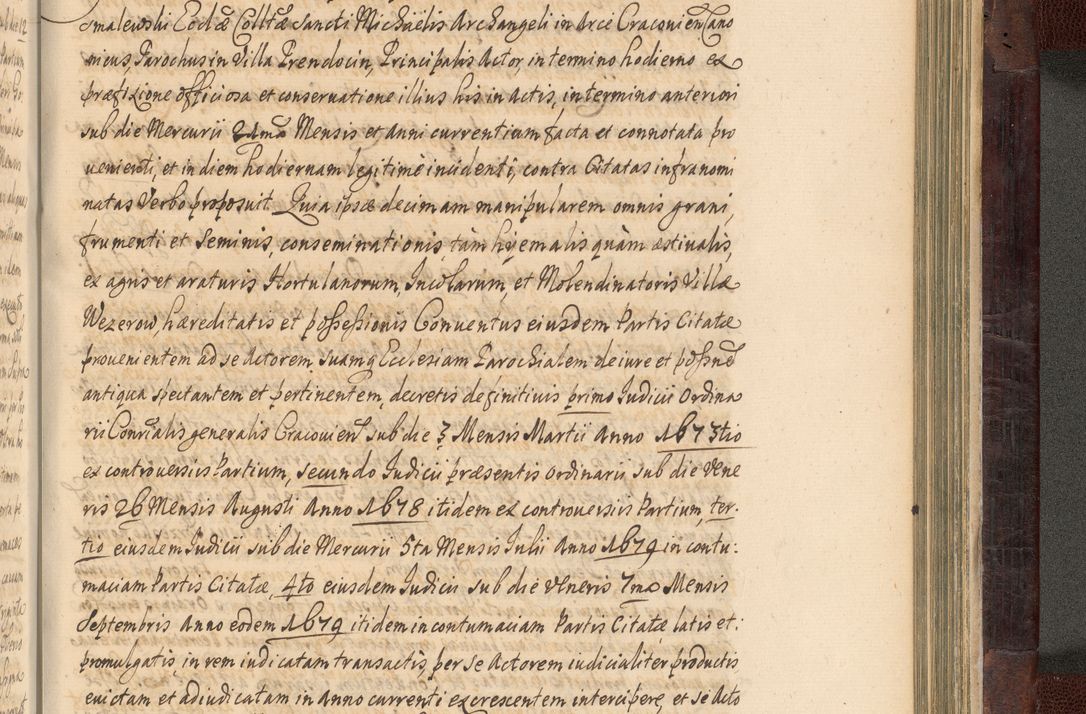 Smalewski Ecclæ Colltæ Sancti Michaëlis Archangeli in Arce Cracouien Cano
nicus, Parochus in Villa Prendocin, Principalis Actor, in termino hodierno ex
præfixione officiosa et conseruatione illius his in Actis, in termino anteriori
sub die Mercurii 21ma Mensis et anni currentium facta et connotata pro
uenienti, et in diem hodiernam legitimè incidenti, contra Citatas infranomi
natas Verbo proposuit. Quia ipsæ decimam manipularem omnis grani,
frumenti et Seminis, conseminationis, tàm hyemalis quàm æstiualis,
ex agris et araturis Hortulanorum, Incolarum, et Molendinatoris Villæ
Wezerow, hæreditatis et possessionis Conuentus eiusdem Partis Citatæ
prouenientem ad se Actorem, suamq Ecclesiam Parochialem de iure et possne
antiqua spectantem et pertinentem, decretis definitiuis primo Iudicii Ordina
rii Consialis generalis Cracouien sub die 3 Mensis Martii Anno 1673tio
ex controuersiis Partium, secundo Iudicii præsentis Ordinarii sub die Vene
ris 26 Mensis Augusti Anno 1678 itidem ex controuersiis Partium, ter-
tio eiusdem Iudicii sub die Mercurii 5ta Mensis Iulii Anno 1679 in contu:
maciam Partis Citatæ, 4to eiusdem Iudicii sub die Veneris 7ma Mensis
Septembris Anno eodem 1679 itidem in contumaciam Partis Citatæ latis et:
promulgatis, in rem iudicatam transactis, per se Actorem iudicialiter productis
euictam et adiudicatam in Anno currenti excrescentem intercipere, et se Acto